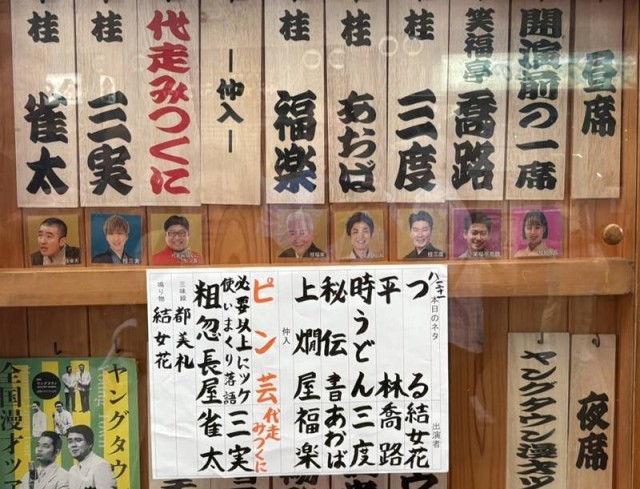 昼席
開演前の一席
笑福亭 喬路
桂 三度
桂 あおば
桂 福楽
―仲入―
代走みつくに
桂 三実
桂 雀太
本日のネタ
出演者
つる 結女花
平林 喬路
時うどん 三度
秘伝書 あおば
上燗屋 福楽
仲入
ピン芸 代走みつくに
必要以上にツケ使いまくり落語 三実
粗忽長屋 雀太
三味線 都 美札
鳴り物 結女花
夜席
ヤングタウン漫才ツ
ヤングタウ
全国漫才ツア